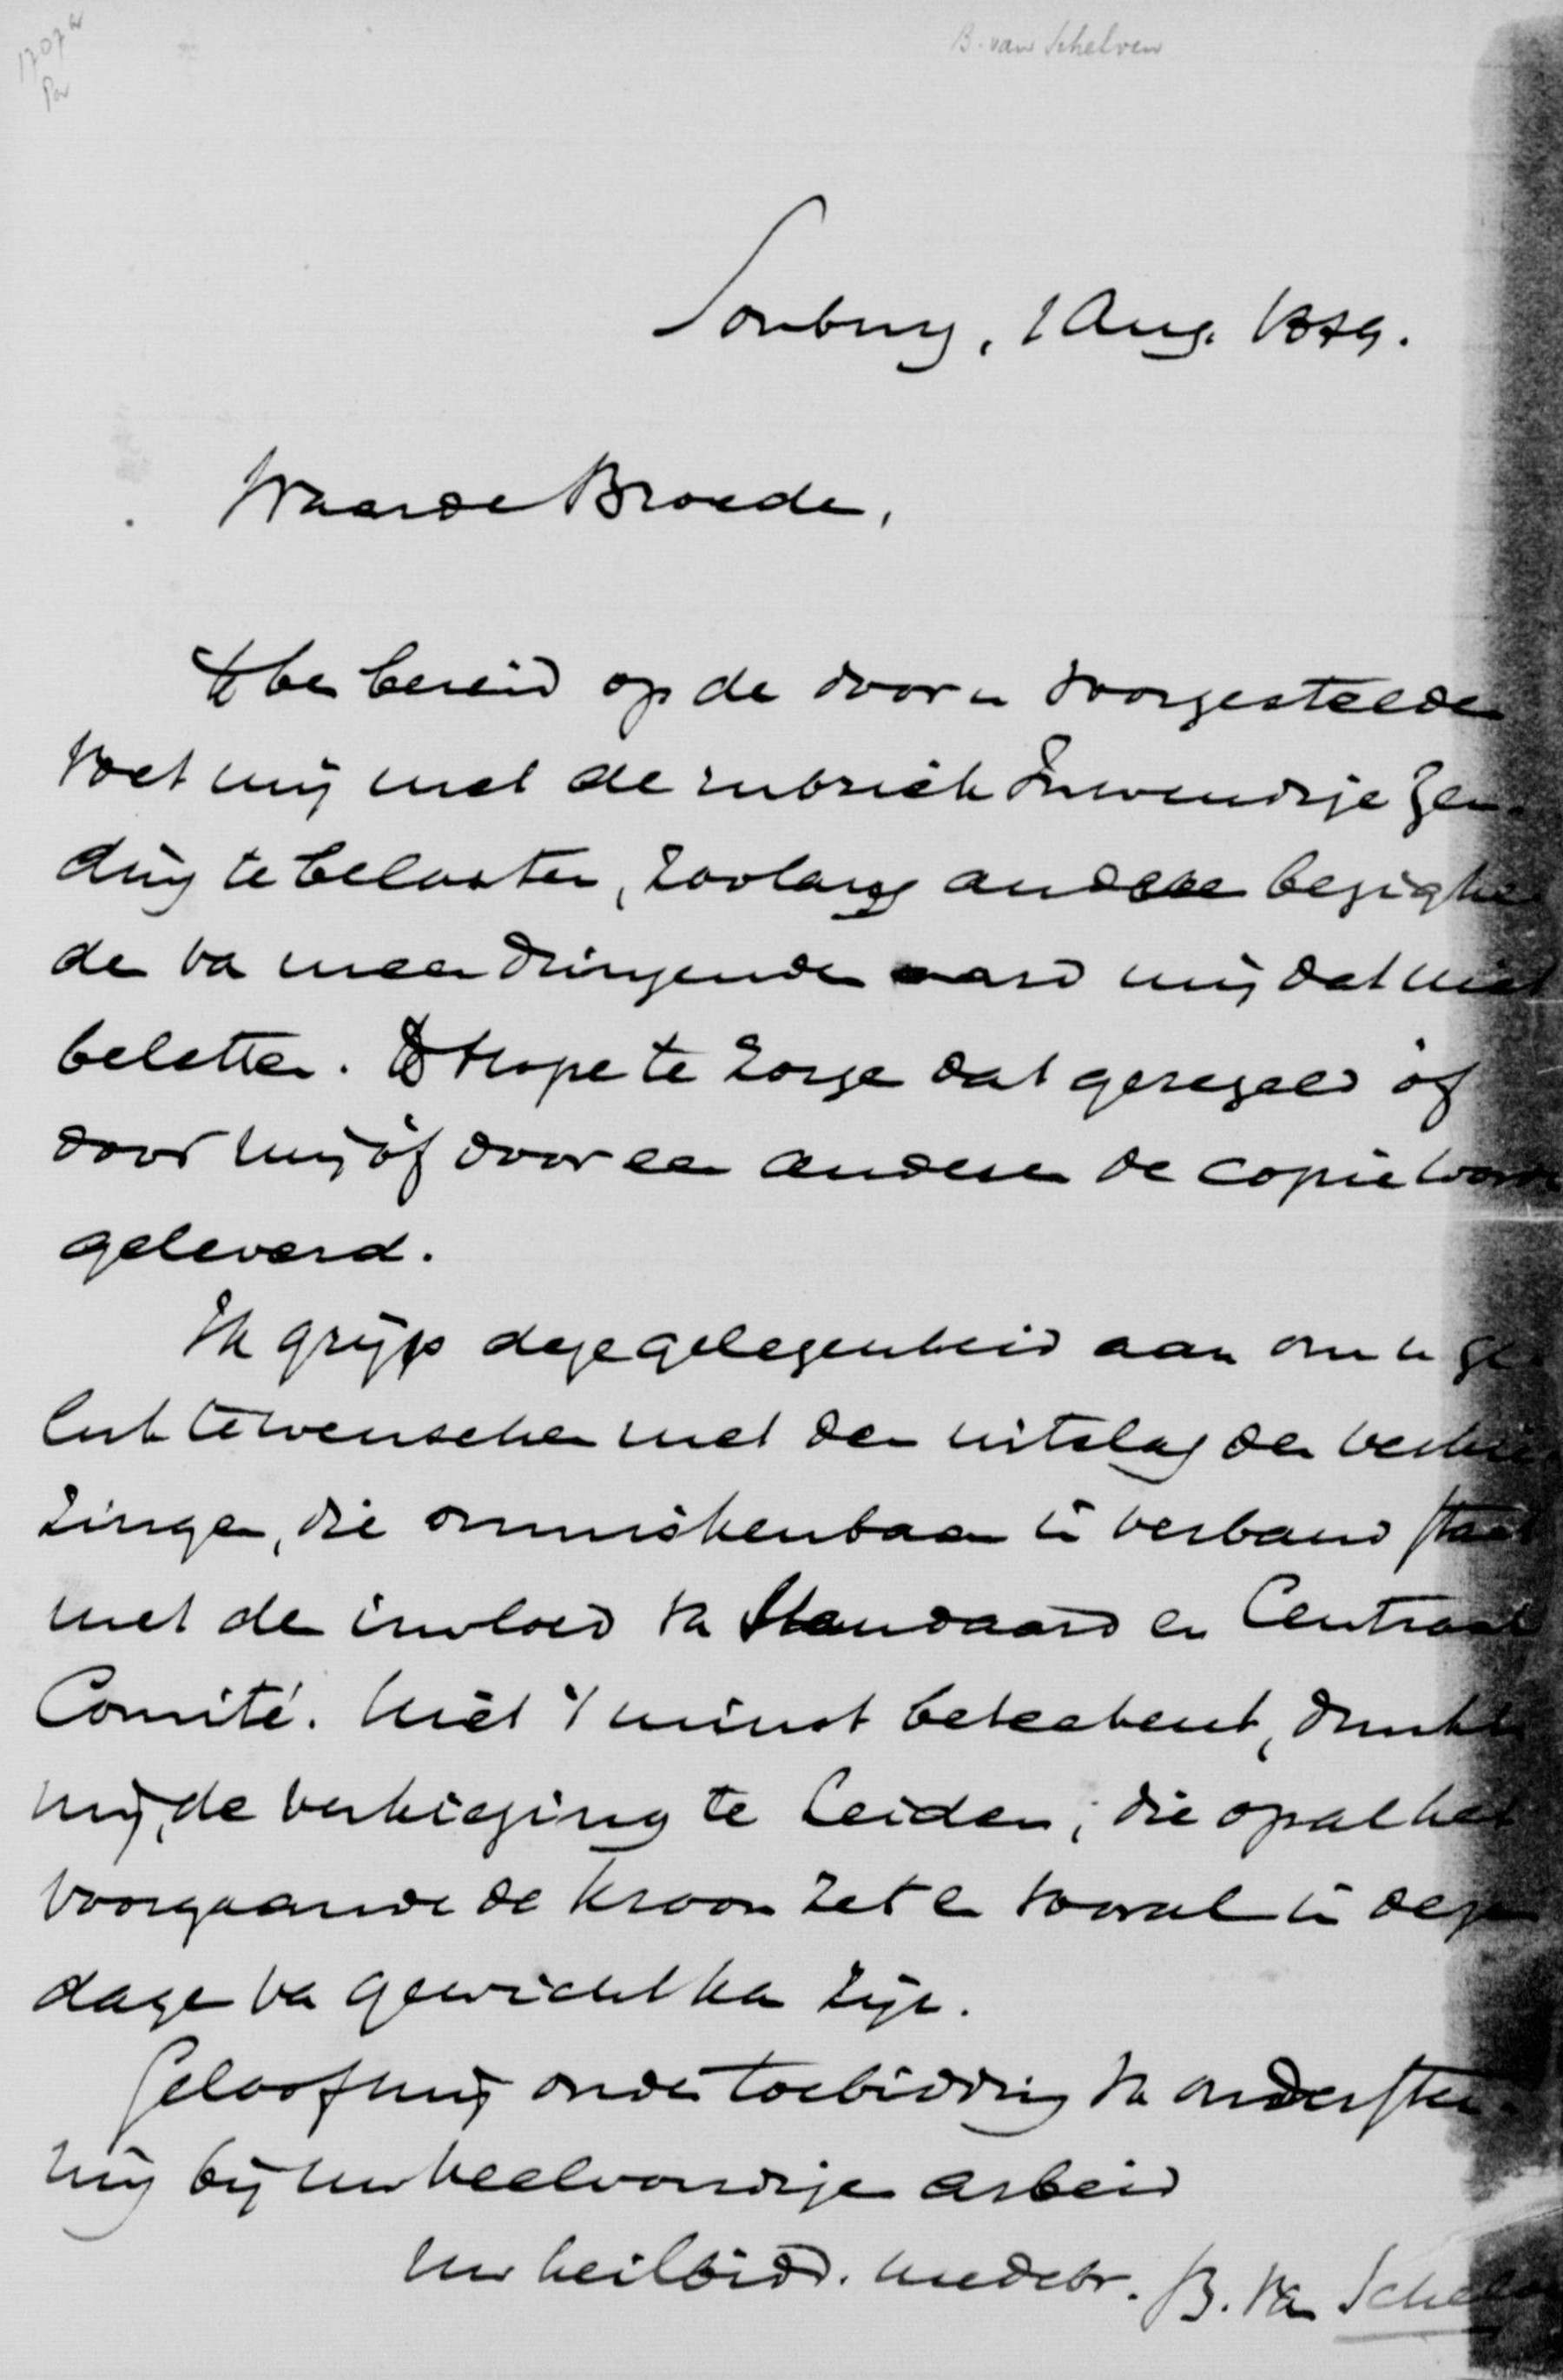 1707 w
B. van Schelven
Sonburg, 1 Aug. 1879.
Waarde Broeder,
Ik ben bereid op de door u voorgestelde
voet mij met de rubriek Inwendige Zen-
ding te belasten, zoolang andere bezighe
den van meer dringenden aard mij dat niet
beletten. Ik hope te zorgen dat geregeld òf
door mij òf door een anderen de copie worde
geleverd.
Ik grijp deze gelegenheid aan om u ge
luk te wenschen met den uitslag der verkie
zingen, die onmiskenbaar in verband staat
met de invloed van Standaard en Centraal
Comité. Niet 't minst beteekent, dunkt
mij, de verkiezing te Leiden, die op al het
voorgaande de kroon zet en vooral in deze
dagen van gewicht kan zijn.
Geloof mij onder toebidding van ondersteu-
ning bij uw veelvoudigen arbeid
Uw heilbidd. medebr. B. van Schelven